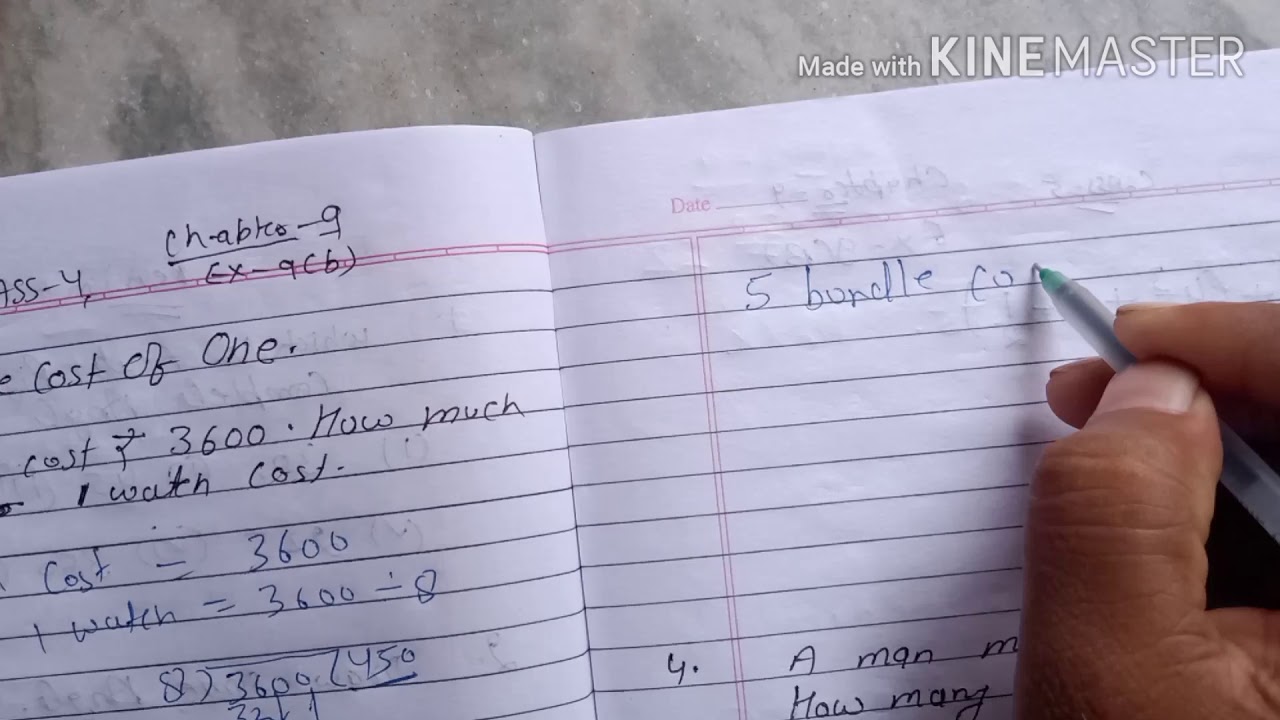 Made with KINEMASTER
Chapter-9
Ex-9(b)
ASS-4,
Cost of One.
cost ₹ 3600. How much
1 watch cost.
Cost = 3600
1 watch = 3600 ÷ 8
8)3600(450
32
Date
5 bundle co
4. A man m
How many